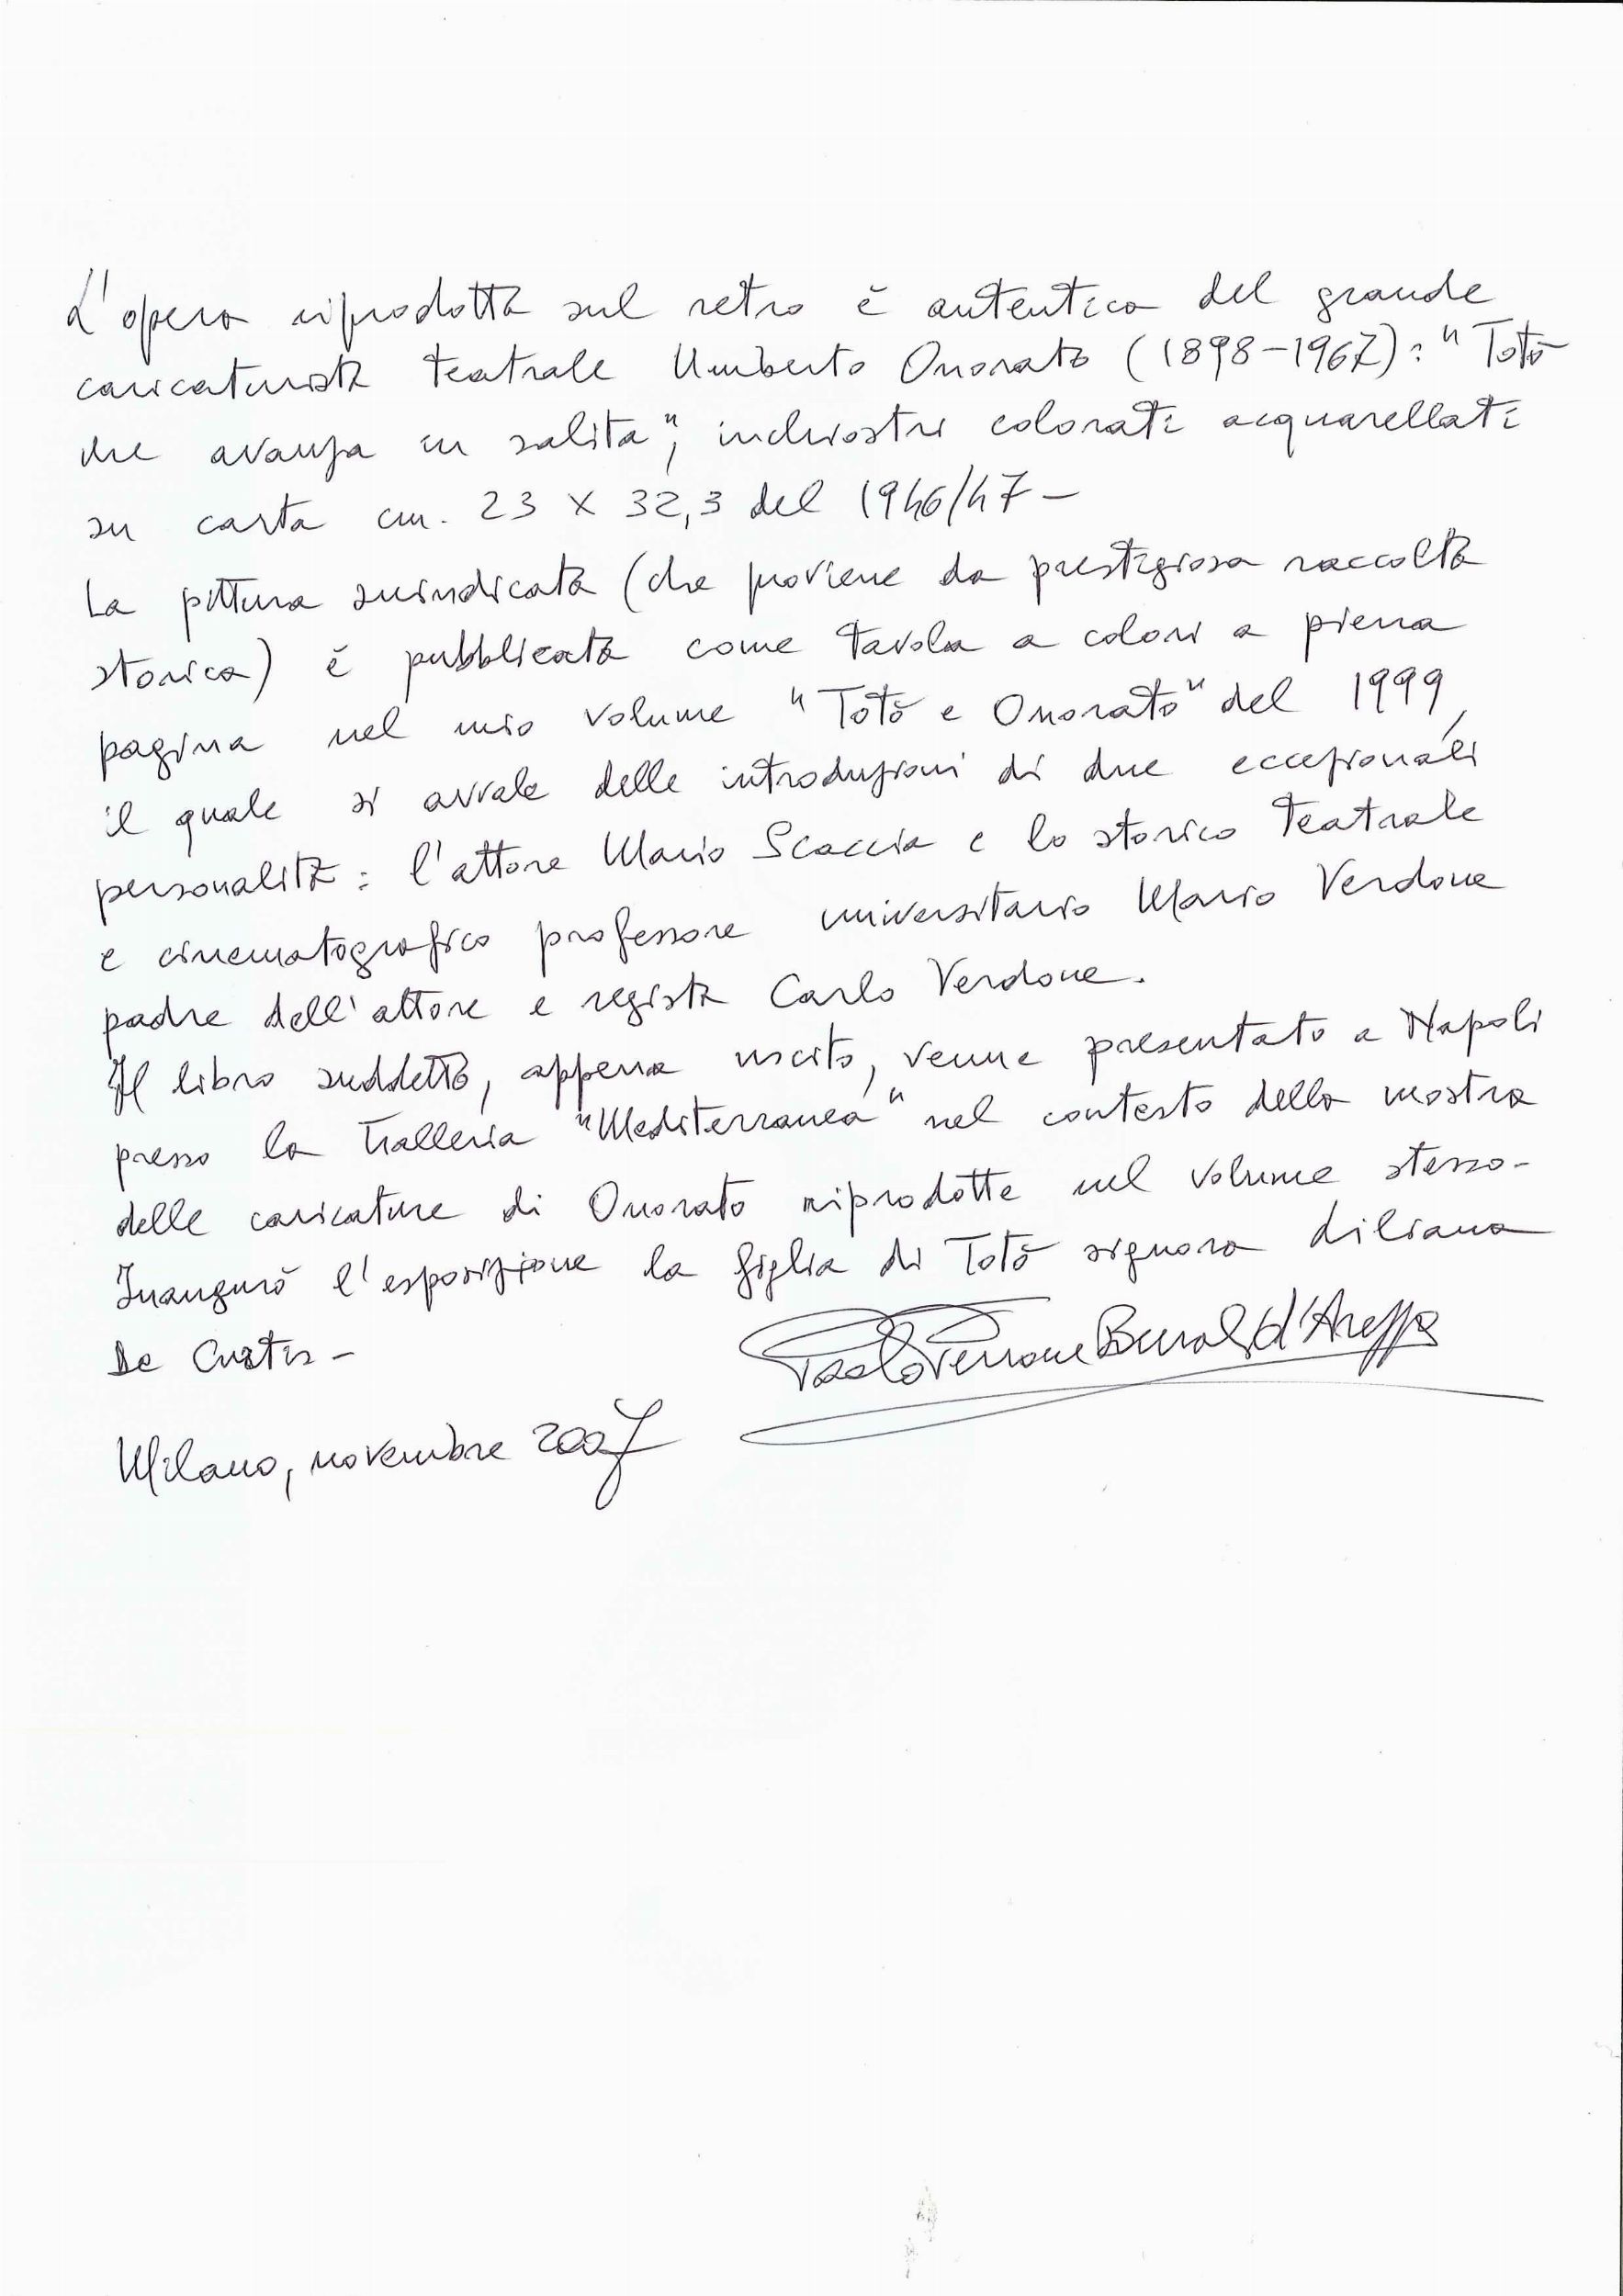 L'opera riprodotta sul retro è autentica del grande
caricaturista teatrale Umberto Onorato (1898-1967): "Totò
che avanza in salita", inchiostri colorati acquarellati
su carta cm. 23 x 32,3 del 1946/47-
La pittura suindicata (che proviene da prestigiosa raccolta
storica) è pubblicata come tavola a colori a piena
pagina nel mio volume "Totò e Onorato" del 1999,
il quale si avvale delle introduzioni di due eccezionali
personalità: l'attore Mario Scaccia e lo storico teatrale
e cinematografico professore universitario Mario Verdone
padre dell'attore e regista Carlo Verdone.
Il libro suddetto, appena uscito, venne presentato a Napoli
presso la Galleria "Mediterranea" nel contesto della mostra
delle caricature di Onorato riprodotte nel volume stesso-
Inaugurò l'esposizione la figlia di Totò signora Liliana
De Curtis-
Paolo Perrone Burali d'Arezzo
Milano, novembre 2007